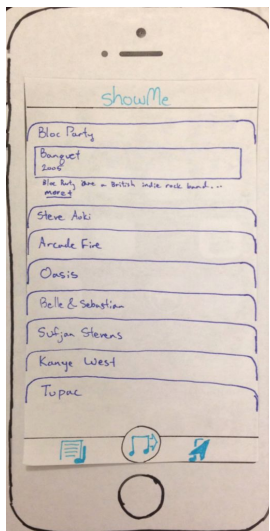 showMe
Bloc Party
Banquet
2005
Bloc Party are a British indie rock band...
more
Steve Aoki
Arcade Fire
Oasis
Belle & Sebastian
Sufjan Stevens
Kanye West
Tupac